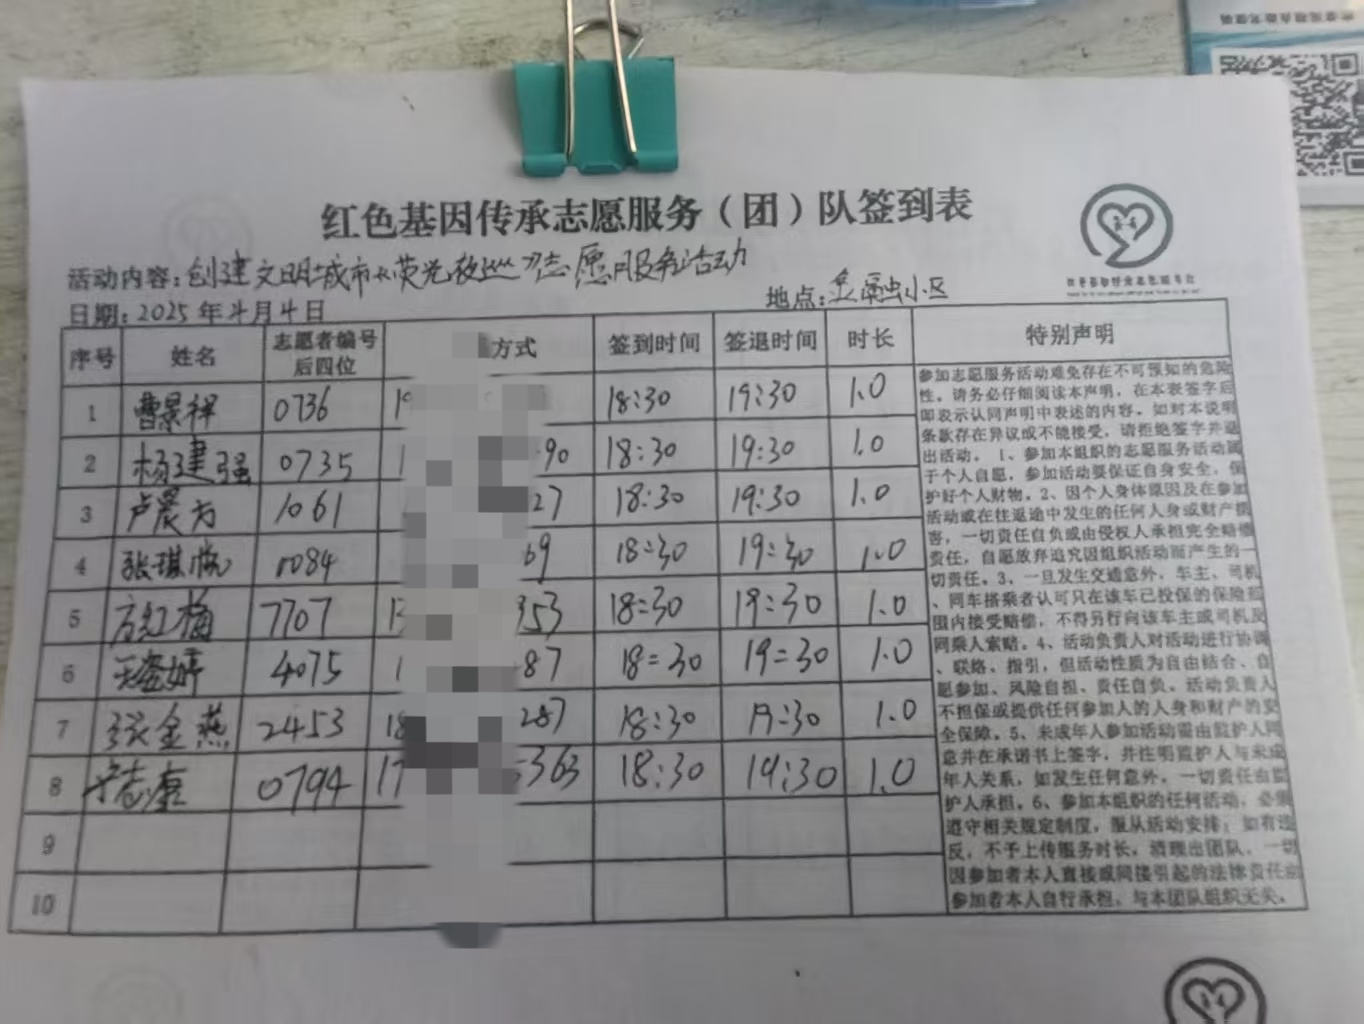 红色基因传承志愿服务（团）队签到表
活动内容：创建文明城市《荧光夜巡》志愿服务活动
日期：2025年4月4日
地点：金融小区
序号 姓名 志愿者编号后四位 方式 签到时间 签退时间 时长 特别声明
1 曹景祥 0736 18:30 19:30 1.0
2 杨建强 0735 90 18:30 19:30 1.0
3 卢晨方 1061 27 18:30 19:30 1.0
4 张琪 0084 69 18:30 19:30 1.0
5 方红梅 7707 353 18:30 19:30 1.0
6 4075 87 18:30 19:30 1.0
7 张金燕 2453 18 287 18:30 19:30 1.0
8 志康 0794 17 5363 18:30 19:30 1.0
9
10
参加志愿服务活动难免存在不可预知的危险
性。请务必仔细阅读本声明，在本表签字后
即表示认同声明中表述的内容。如对本说明
条款存在异议或不能接受，请拒绝签字并退
出活动。1、参加本组织的志愿服务活动属
于个人自愿，参加活动要保证自身安全，保
护好个人财物。2、因个人身体原因及在参加
活动或在往返途中发生的任何人身或财产损
害，一切责任自负或由侵权人承担完全赔偿
责任，自愿放弃追究因组织活动而产生的一
切责任。3、一旦发生交通意外，车主、司机
、同车搭乘者认可只在该车已投保的保险范
围内接受赔偿，不得另行向该车主或司机及
同乘人索赔。4、活动负责人对活动进行协调
、联络、指引，但活动性质为自由结合、自
愿参加、风险自担、责任自负。活动负责人
不担保或提供任何参加人的人身和财产的安
全保障。5、未成年人参加活动需由监护人同
意并在承诺书上签字，并注明监护人与未成
年人关系，如发生任何意外，一切责任由监
护人承担。6、参加本组织的任何活动，必须
遵守相关规定制度，服从活动安排；如有违
反，不予上传服务时长，清理出团队。一切
因参加者本人直接或间接引起的法律责任由
参加者本人自行承担，与本团队组织无关。